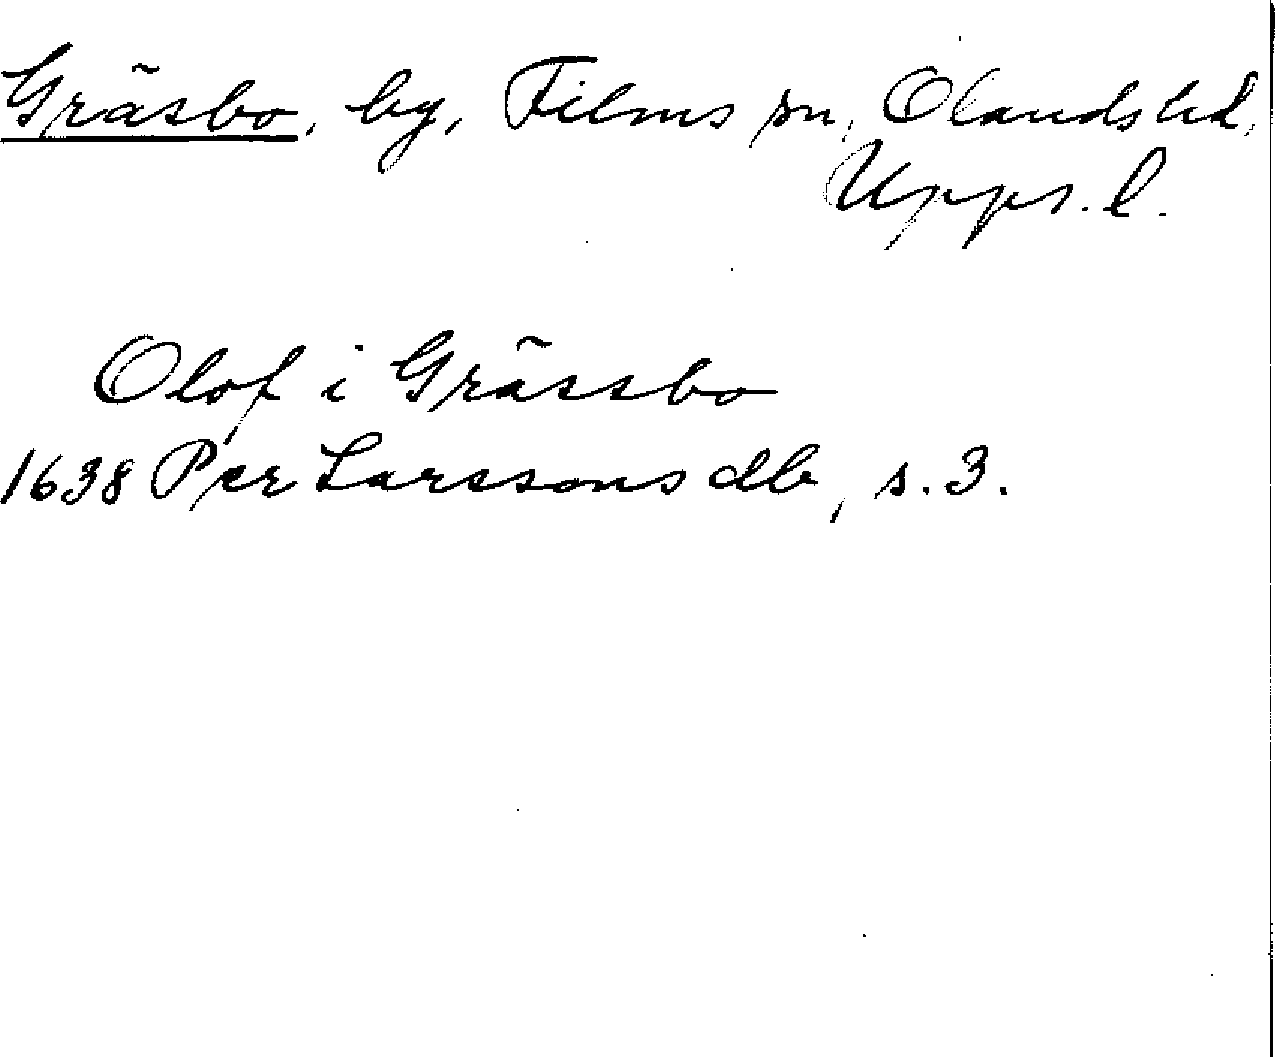 Gräsbo, by, Films sn, Olands hd,
Upps. l.
Olof i Grässbo
1638 Per Larssons db, s. 3.